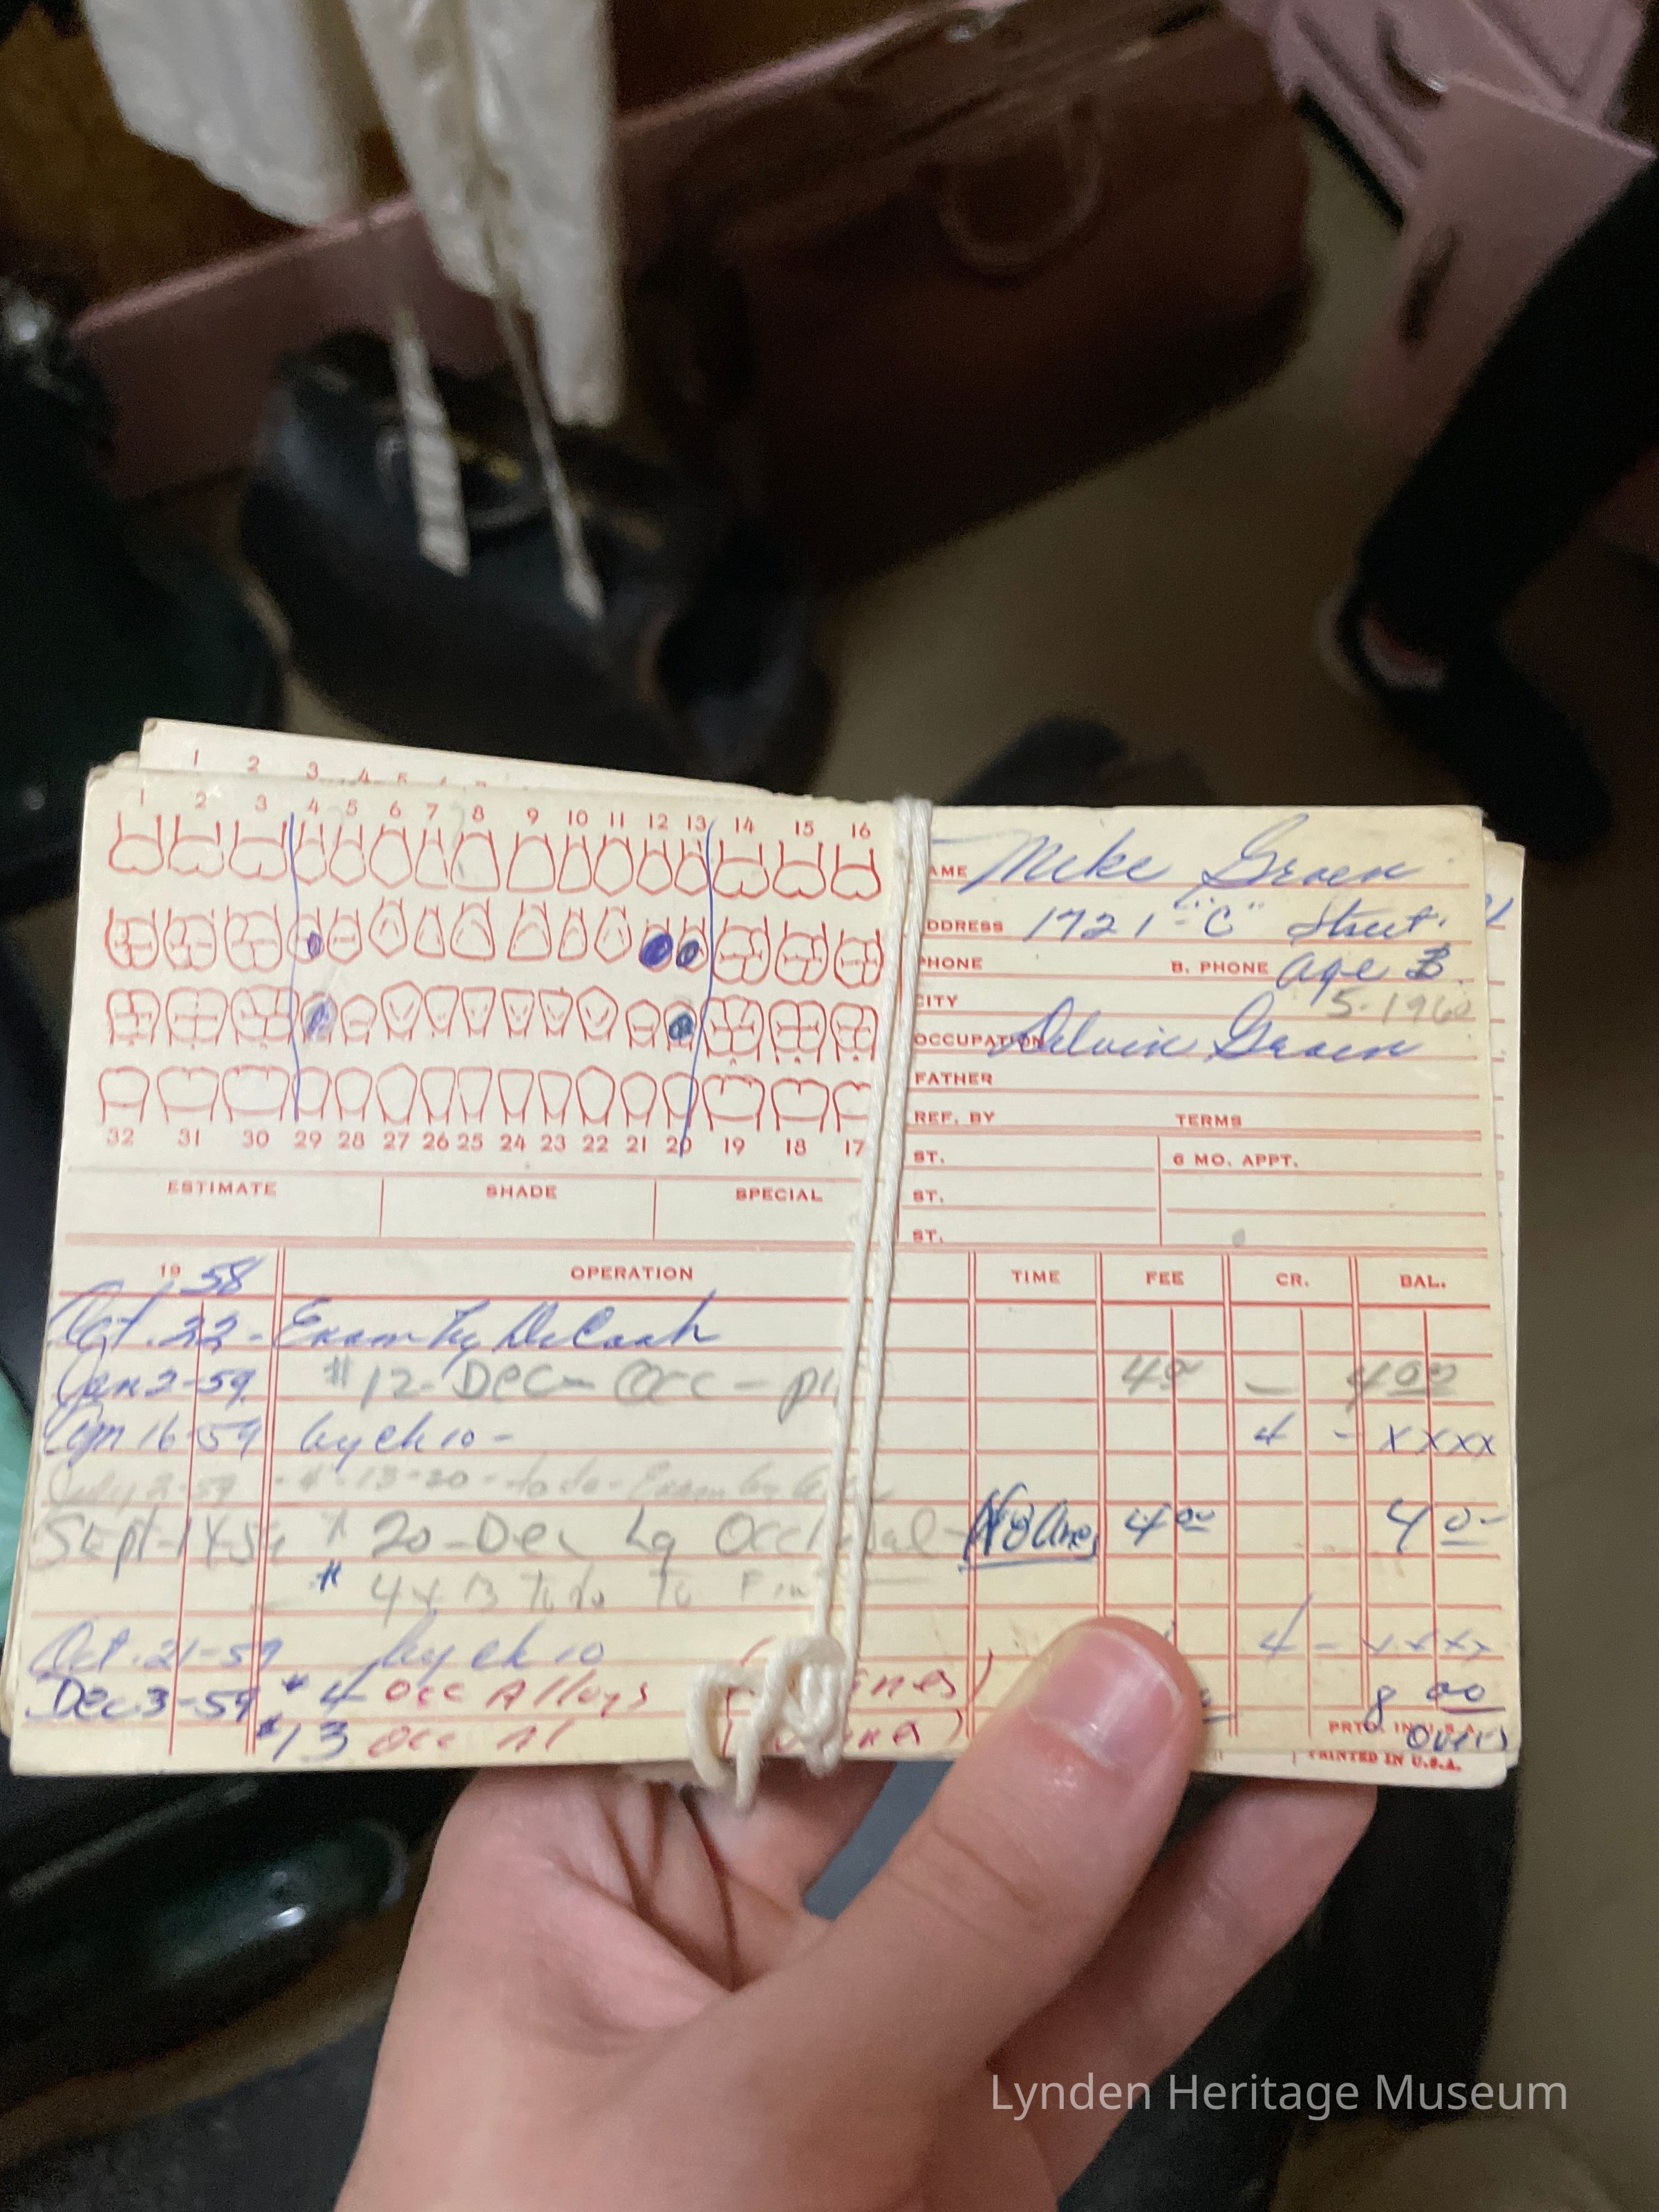 1 2 3 4 5
1 2 3 4 5 6 7 8 9 10 11 12 13 14 15 16
32 31 30 29 28 27 26 25 24 23 22 21 20 19 18 17
ESTIMATE SHADE SPECIAL
AME Mike Groen
DDRESS 1721 "C" Street.
PHONE B. PHONE Age
CITY 5-1960
OCCUPATION Groen
FATHER
REF. BY TERMS
ST. 6 MO. APPT.
ST.
ST.
19 58 OPERATION TIME FEE CR. BAL.
Oct. 22 - Exam by
Jan 2-59 #12- Dec- Occ - 4 00 — 4 00
Jan 16-59 by ch 10 - 4 - xxxx
July 2-59 - 4-13-20 - to do - Exam by
Sept-14-59 # 20 - Dec Lg 4 00 4 0-
# 4 + 13 To do To
Oct. 21-59 by ch 10 4 - xxxx
Dec 3-59 # 4 Occ Alloys 8 00
#13 Occ Al over
PRTD. IN U.S.A.
PRINTED IN U.S.A.
Lynden Heritage Museum